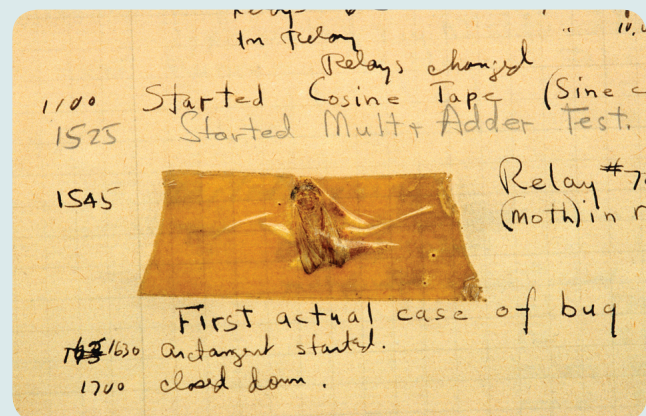 In Relay
Relays changed
1100 Started Cosine Tape (Sine c
1525 Started Mult+ Adder Test.
1545 Relay #70
(moth) in r
First actual case of bug
1630 arctangent started.
1700 closed down.